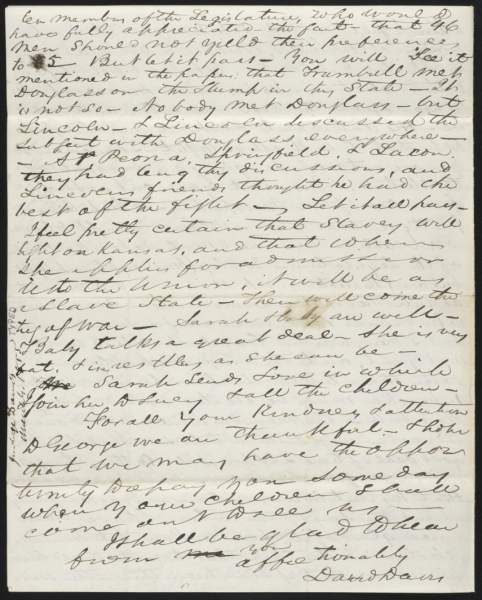 ten members of the Legislature, who would
have fully appreciated the fact that 46
men should not yield their preferences
to 5 But let it pass — You will see it
mentioned in the papers that Trumbull met
Douglass on the Stump in this State — It
is not so — Nobody met Douglass — but
Lincoln — & Lincoln discussed the
subject with Douglass everywhere —
— At Peoria, Springfield, & Lacon.
they had lengthy discussions, and
Lincolns friends thought he had the
best of the fight — Let it all pass —
I feel pretty certain that Slavery will
light on Kansas, and that when
she applies for admission
into the Union, it will be as
a Slave State — Then will come the
tug of war — Sarah & baby are well —
Baby talks a great deal — She is very
fat, & is restless as she can be —
Sarah sends love in which
I join her to Lucy & all the children —
For all your kindness & attention
to George we are thankful — I hope
that we may have the oppor
tunity to repay you some day
when your children shall
come out to see us —
I shall be glad to hear
from you
affectionately
David Davis